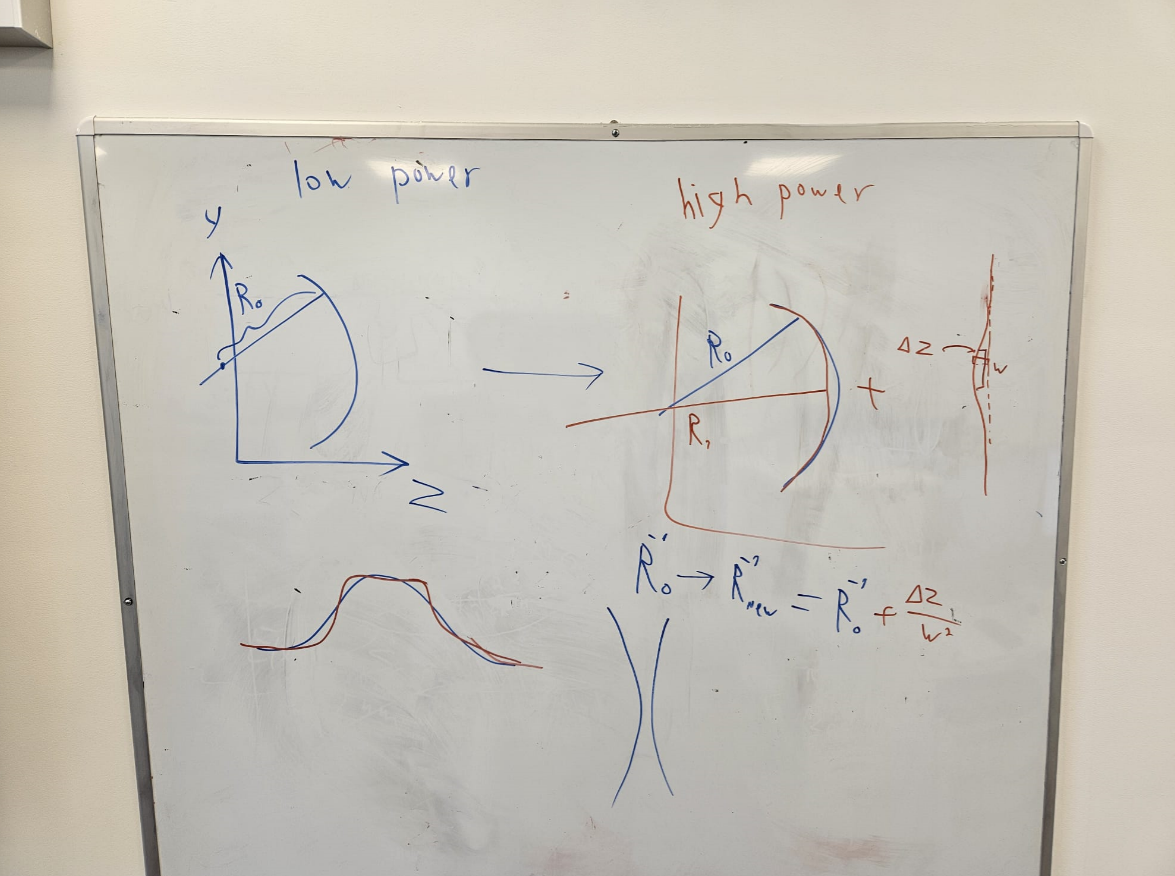 low power
high power
y
R₀
Z
R₀
R₁
+
ΔZ
w
R₀⁻¹ → R⁻¹new = R₀⁻¹ + ΔZ/w²